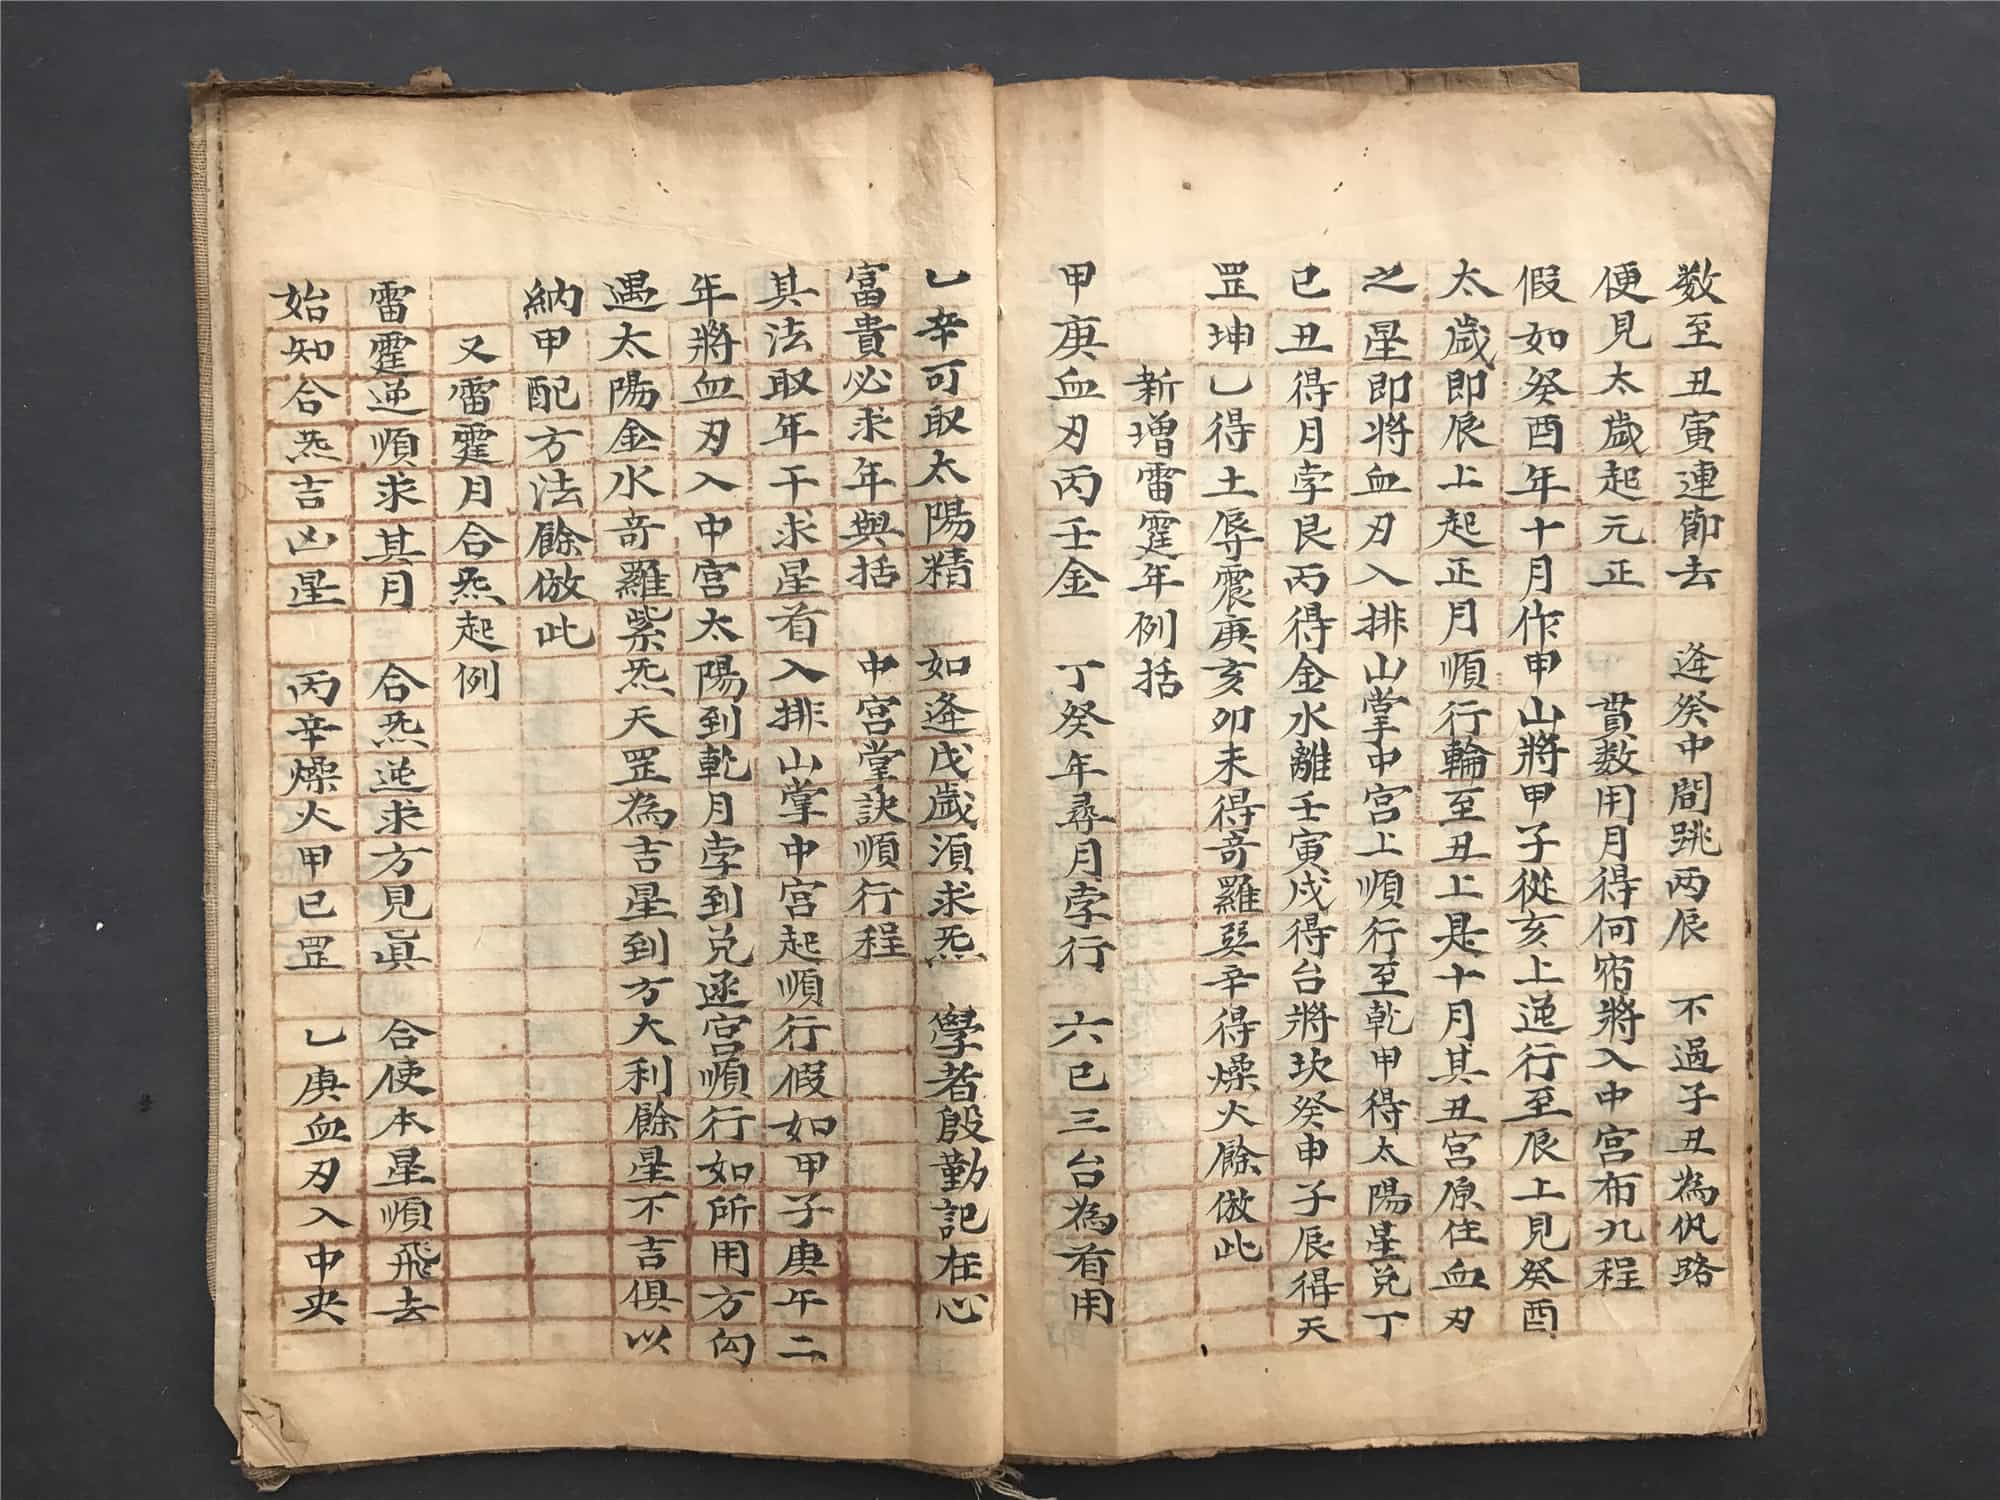 数至丑寅連節去 逄癸中間跳两辰 不過子丑為仇路
便見太歲起元正 貫数用月得何宿將入中宮布九程
假如癸酉年十月作甲山將甲子從亥上逆行至辰上見癸酉
太歲即辰上起正月順行輪至丑上是十月其丑宮原住血刃
之星即將血刃入排山掌中宮上順行至乹甲得太陽星兑丁
巳丑得月孛艮丙得金水離壬寅戌得台將坎癸申子辰得天
罡坤乙得土辱震庚亥夘未得竒羅巽辛得燥火餘倣此
新增雷霆年例括
甲庚血刃丙壬金 丁癸年尋月孛行 六巳三台為首用
乙辛可取太陽精 如逄戊歲湏求炁 學者殷勤記在心
富貴必求年與括 中宮掌訣順行程
其法取年干求星首入排山掌中宮起順行假如甲子庚午二
年將血刃入中宮太陽到乹月孛到兑逐宮順行如所用方向
遇太陽金水竒羅紫炁天罡為吉星到方大利餘星不吉俱以
納甲配方法餘倣此
又雷霆月合炁起例
雷霆逆順求其月 合炁逆求方見眞 合使本星順飛去
始知合炁吉凶星 丙辛燥火甲巳罡 乙庚血刃入中央